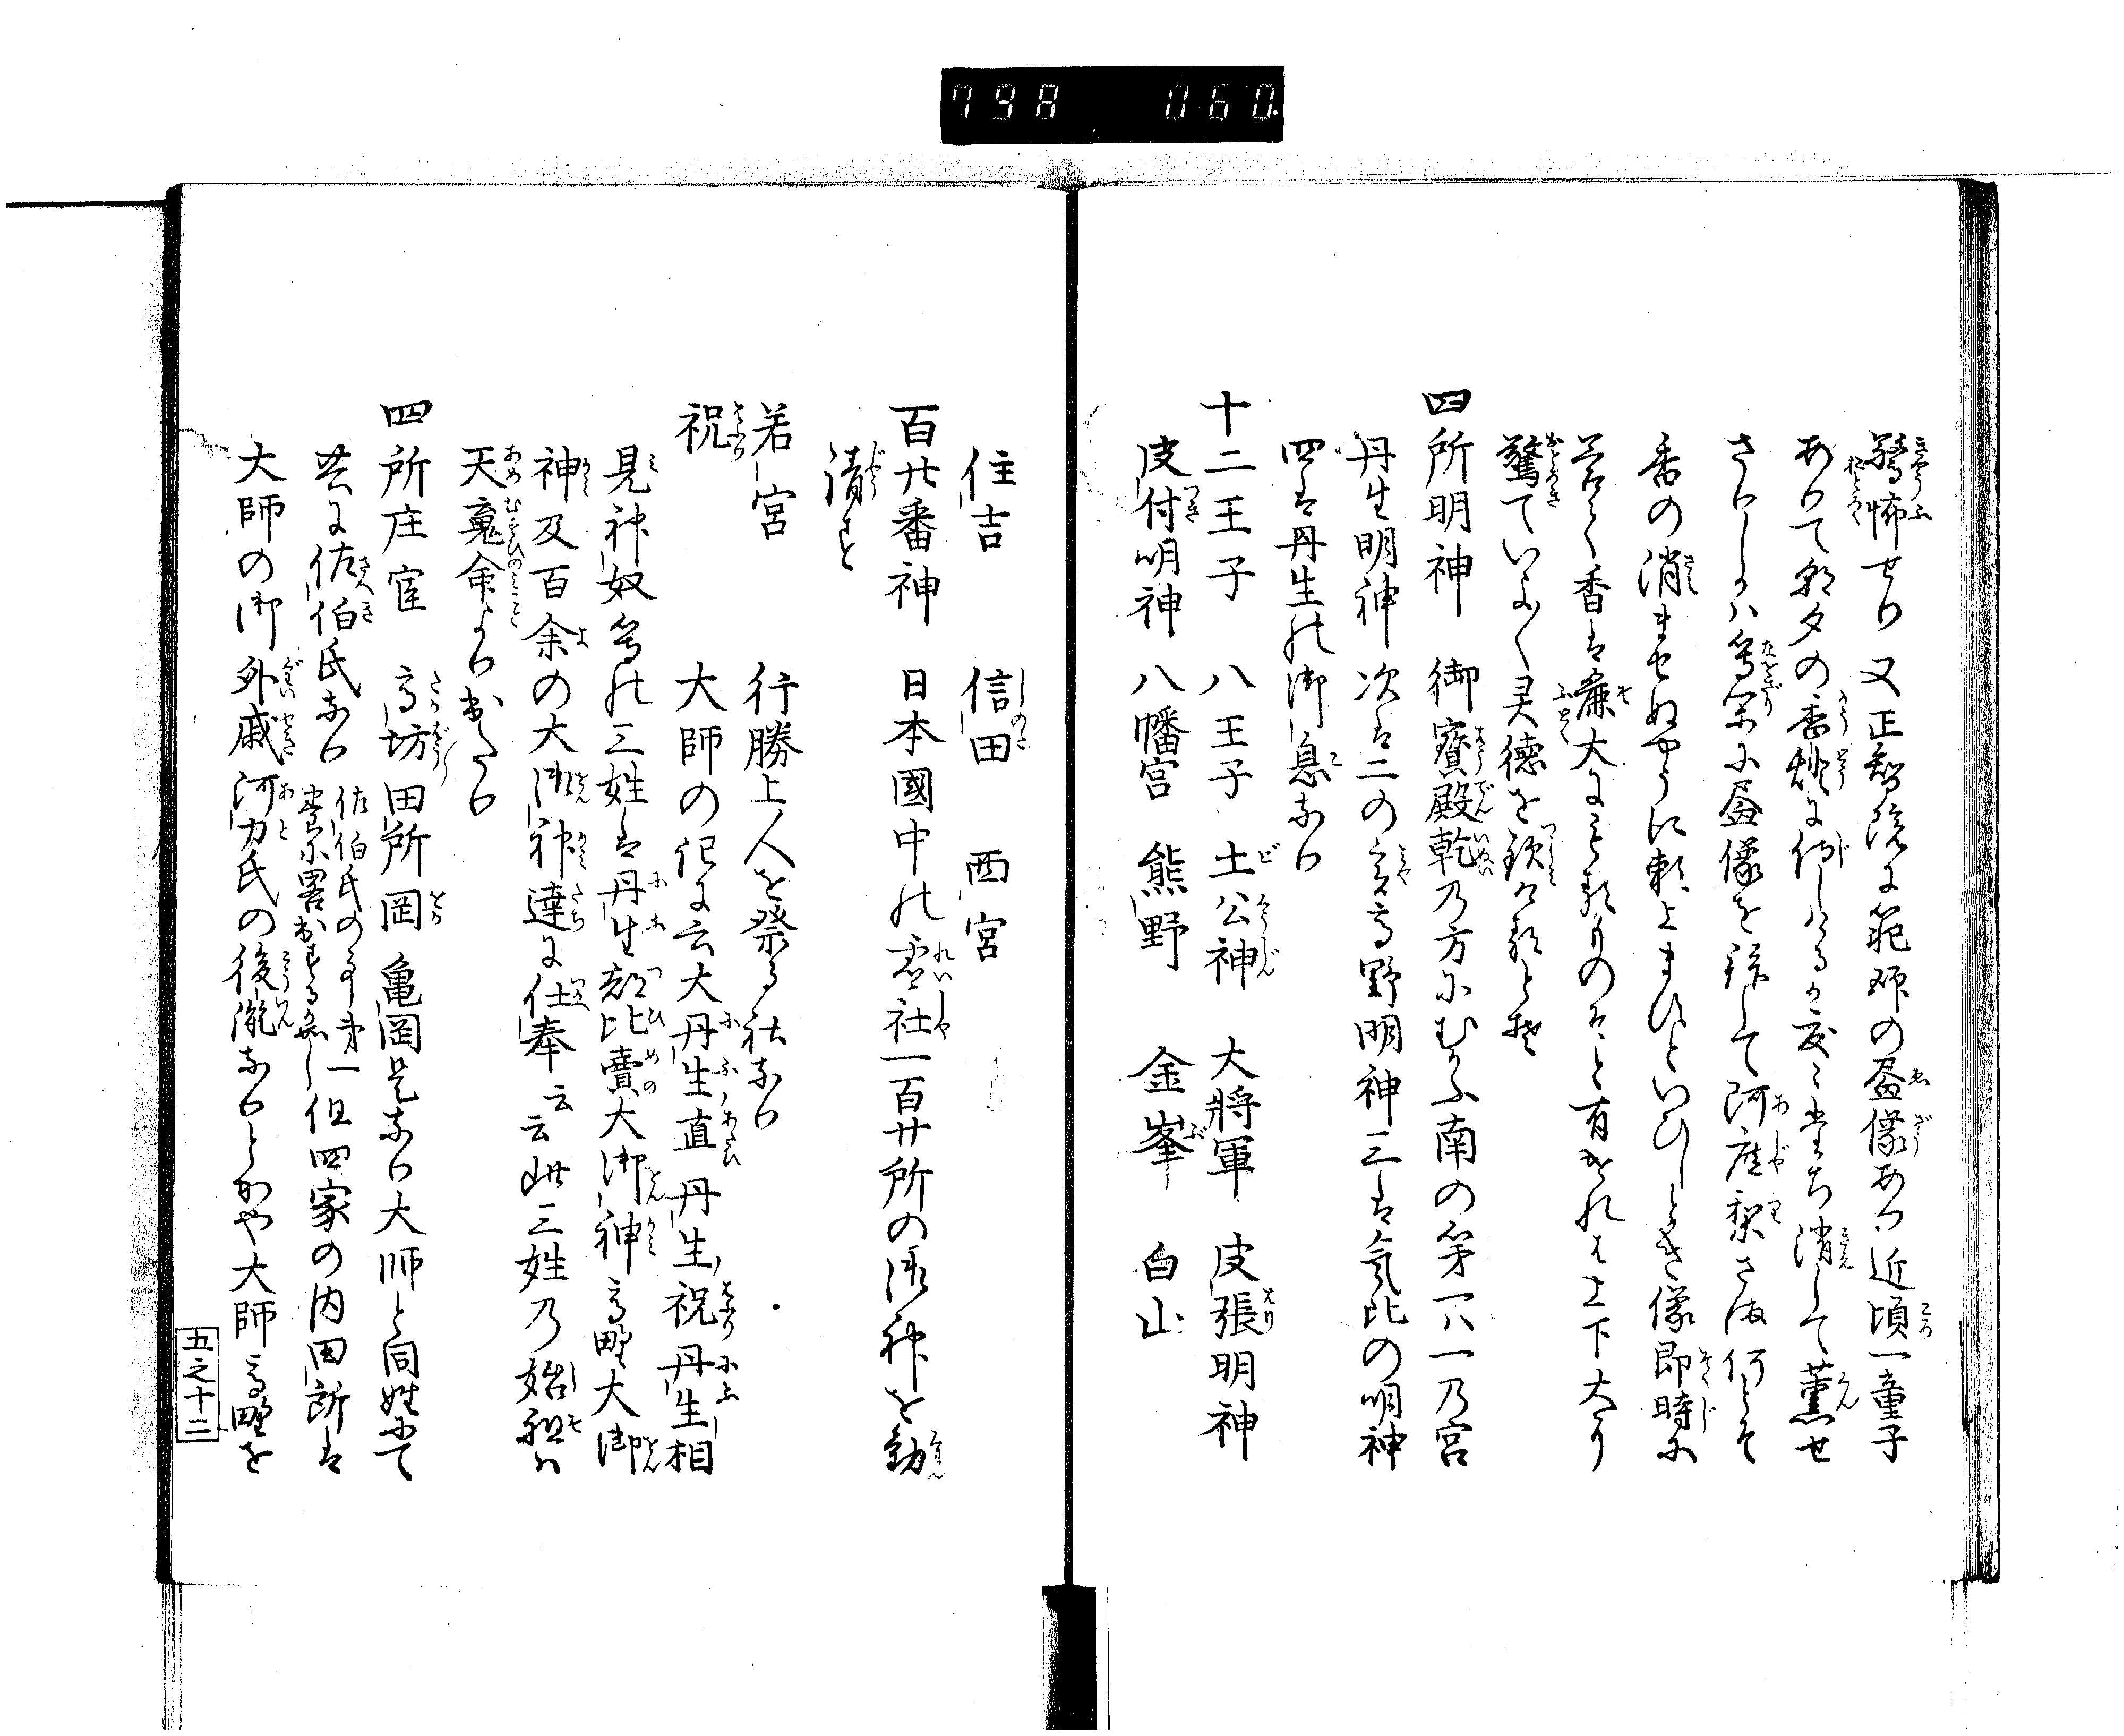 798 060
驚怖せり又正智院に範師の畫像あり近頃一童子
ありて朝夕の香燃に侍しけるか度々立ち消して薫せ
さりしかハ等閑に畫像を拝して阿庿梨さま何とそ
香の消ませぬやうに頼上まひといひしとき像即時に
香は麁大に
驚ていよ〱灵徳を
四所明神 御寳殿乾乃方にむかふ南の第一ハ一乃宮
丹生明神次は二の宮高野明神三は氣比の明神
四は丹生の御息なり
十二王子 八王子 土公神 大將軍 皮張明神
皮付明神 八幡宮 熊野 金峯 白山
住吉 信田 西宮
百廿番神 日本國中の霊社一百廿所の御神を勧
請す
若宮 行勝上人を祭る社なり
祝 大師の記に云大丹生直丹生祝丹生相
見神奴等の三姓は丹生都比賣大御神高野大御
神及百余の大御神達に仕奉云云此三姓乃始祖ハ
天魂命より出たり
四所庄官 高坊田所岡亀岡是なり大師と同姓にて
共に佐伯氏なり佐伯氏の事第一巻に畧出するか如し但四家の内田所は
大師の御外戚阿刀氏の後胤なりとかや大師高野を
五之十二